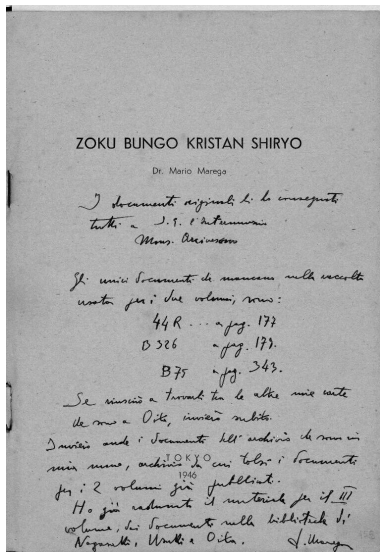 ZOKU BUNGO KRISTAN SHIRYO
Dr. Mario Marega
I documenti originali li ho consegnati
tutti a S. E. l'Internunzio
Mons.
Gli unici documenti che mancano nella raccolta
usata per i due volumi, sono:
44R ... a pag. 177
B 326 a pag. 179.
B 75 a pag. 343.
Se riuscirò a trovarli tra le altre mie carte
che sono a Oita, invierò subito.
Invierò anche i documenti dell'archivio che sono in
TOKYO
mia mano, archivio da cui tolsi i documenti
1946
per i 2 volumi già pubblicati.
Ho già radunato il materiale per il III
volume, dai documenti nella biblioteca di
Nagasaki, Usuki e Oita. Marega